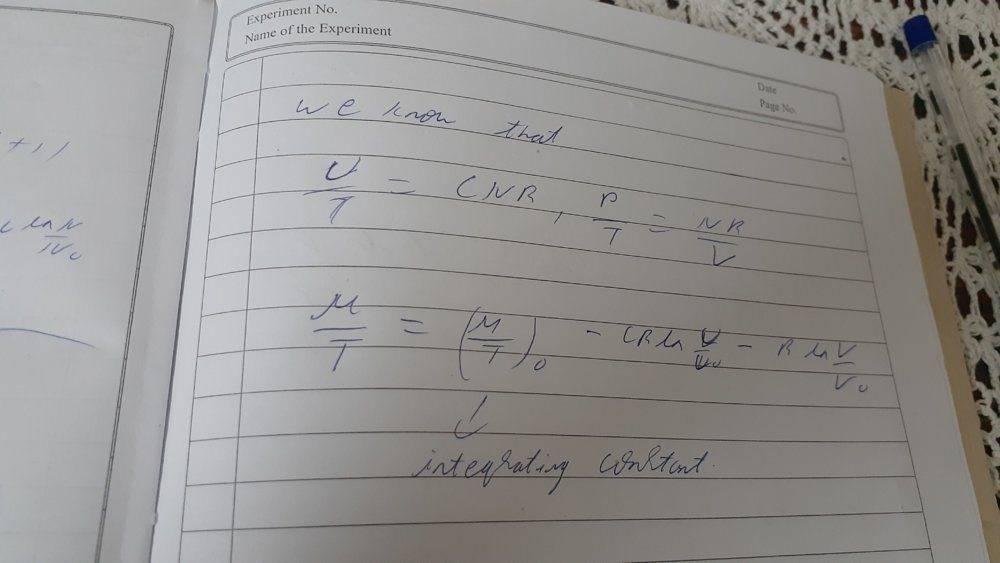 Experiment No.
Name of the Experiment
Date
Page No.
we know that
U/T = CNR, P/T = NR/V
μ/T = (μ/T)₀ - CR ln U/U₀ - R ln V/V₀
↓
integrating constant.
+1)
ln N/N₀